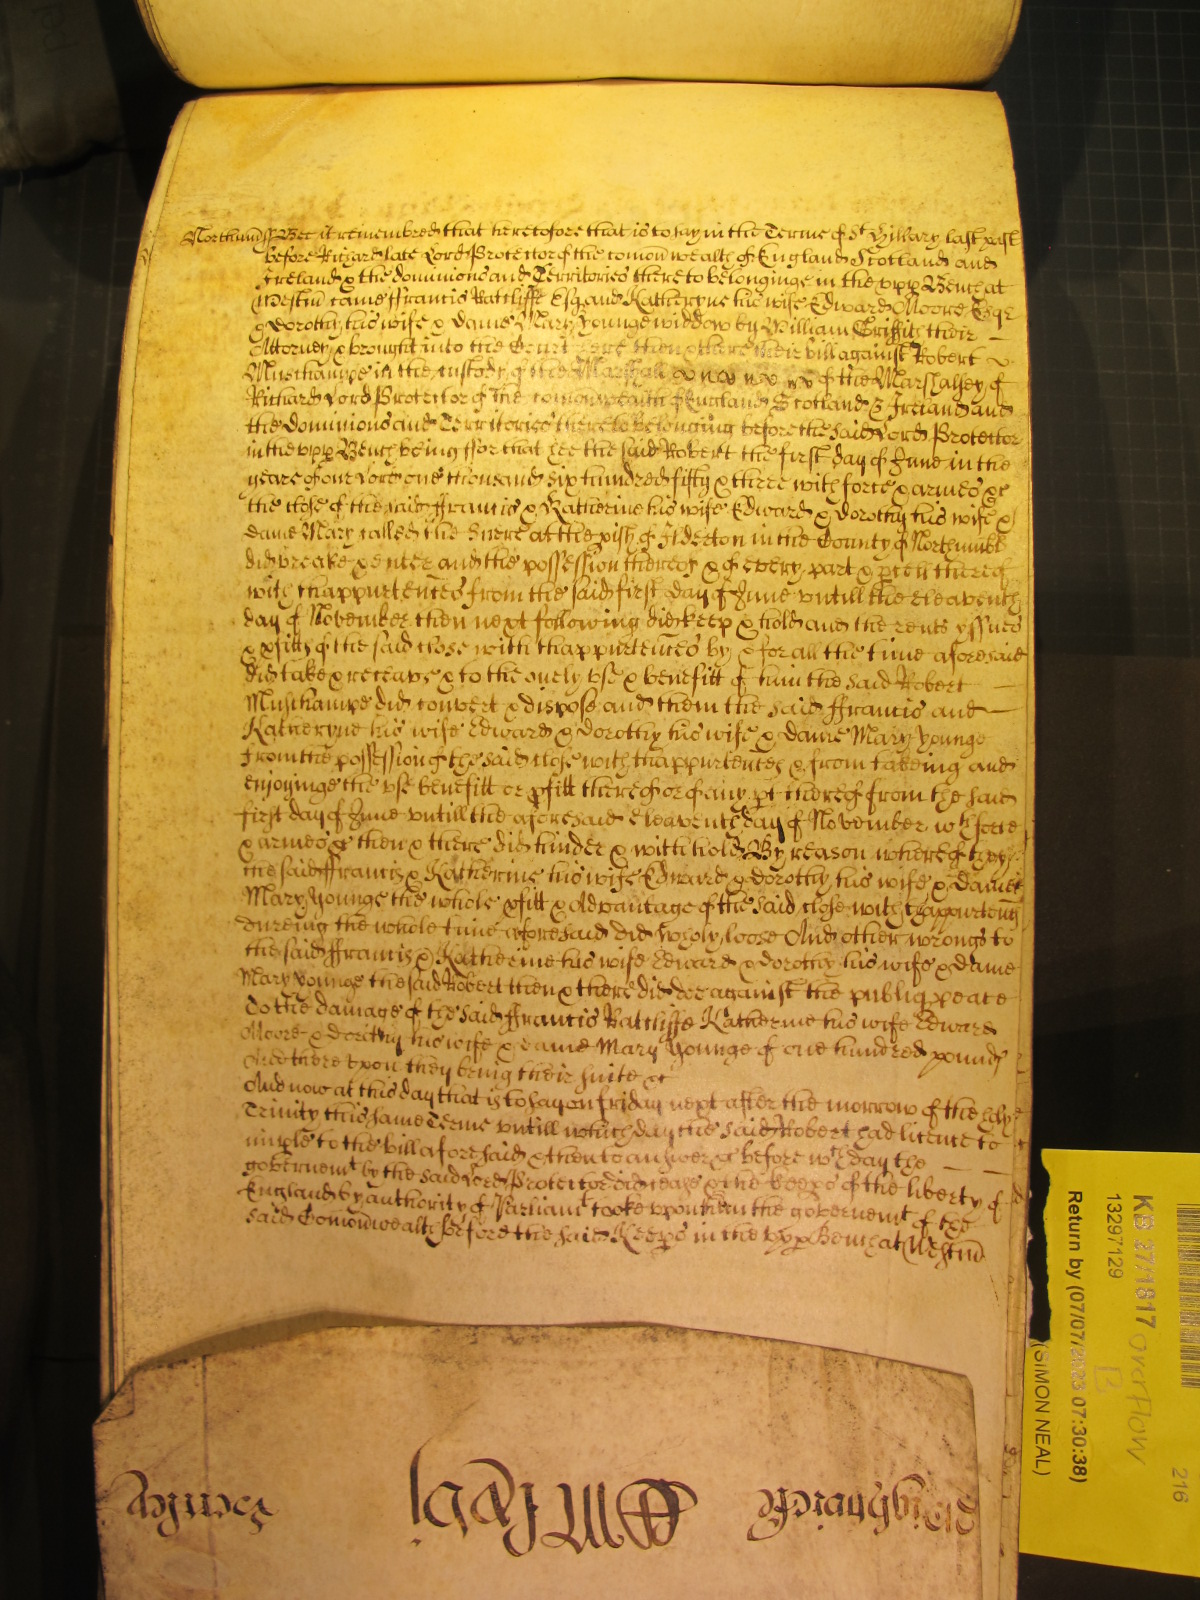 Northumbr ss Bee it remembred that heretofore that is to say in the Terme of St Hillary last past
before Richard late Lord Protector of the comon wealth of England Scotland and
Ireland & the dominions and Territories thereto belonginge in the upp Bench at
Westm came ffrancis Ratcliffe Esq and Katheryne his wife Edward Moore Esqr
& Dorothy his wife & dame Mary Younge widdow by William Griffith their
Attorney & brought into the Court here then & there their bill against Robert
Muschampe in the custody of the Marshall of the Marshalsey of
Richard Lord Protector of the comonwealth of England Scotland & Ireland and
the dominions and Territories thereto belonging before the said Lord Protector
in the upp Bench being ffor that hee the said Robert the first day of June in the
yeare of our Lord one thousand six hundred fifty & three with force & armes &c
the close of the said ffrancis & Katherine his wife Edward & Dorothy his wife &
dame Mary called the at the pish of Ilderton in the County of Northumbr
did breake & enter and the possession thereof & of every part & pcell thereof
with thappurtences from the said first day of June untill the eleaventh
day of November then next following did keep & hold and the rents yssues
& pfitts of the said close with thappurtences by & for all the time aforesaid
did take & receave & to the onely use & benefitt of him the said Robert
Muschampe did convert & dispose and them the said ffrancis and
Katheryne his wife Edward & Dorothy his wife & dame Mary Younge
from the possession of the said close with thappurtences & from takeing and
enjoyinge the use benefitt or pfitt thereof or of any pt thereof from the said
first day of June untill the aforesaid eleaventh day of November wth force
& armes &c then & there did hinder & withhold By reason whereof they
the said ffrancis & Katherine his wife Edward & Dorothy his wife & dame
Mary Younge the whole pfitt & advantage of the said close with thappurtences
dureing the whole time aforesaid did wholy loose And other wrongs to
the said ffrancis & Katherine his wife Edward & Dorothy his wife & dame
Mary Younge the said Robert then & there did doe against the publiq peace
To the damage of the said ffrancis Ratcliffe Katherine his wife Edward
Moore & Dorithy his wife & dame Mary Younge of one hundred pounds
And thereupon they bring their suite &c
And now at this day that is to say on friday next after the morrow of the holy
Trinity this same Terme untill which day the said Robert had licence to
imple to the bill aforesaid & then to answer &c before wch day the
governemt by the said Lord Protector did cease & the keeps of the liberty of
England by authority of Parliamt tooke upon them the governemt of the
said Comonwealth Before the said Keeps in the upp Bench at Westm
KB 27/1817 overflow
13297129
Return by (07/07/2023 07:30:38)
(SIMON NEAL)
216